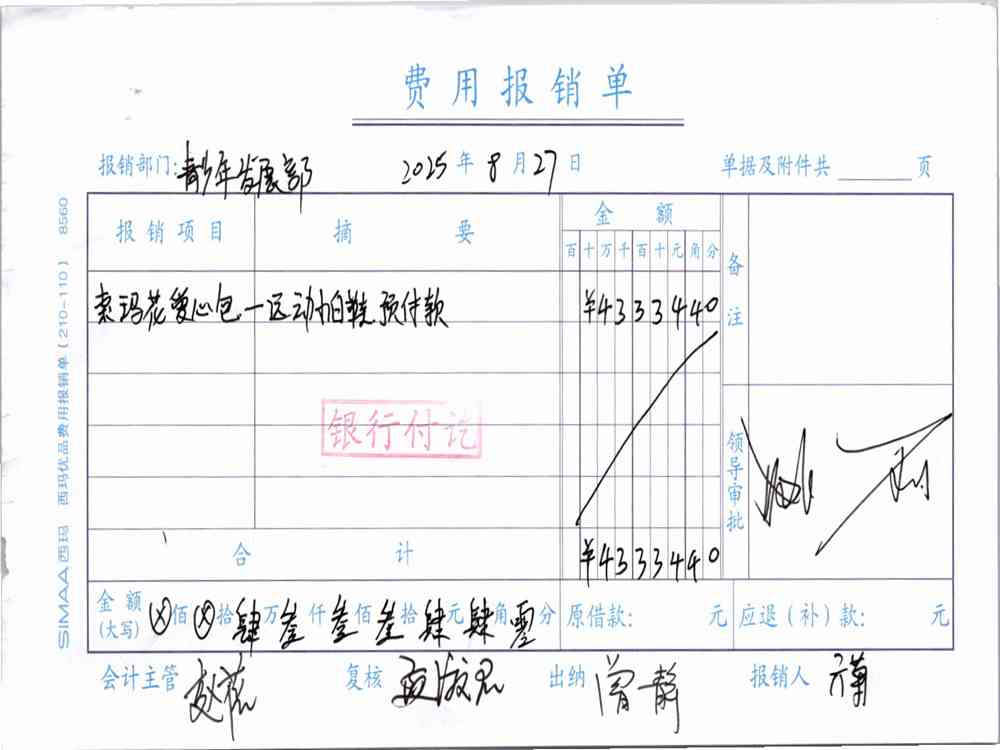 费用报销单
报销部门:青少年发展部 2025年8月27日 单据及附件共 页
报销项目 摘要 金额 备注
百十万千百十元角分
索玛花爱心包一运动拍鞋预付款 ¥4333440
银行付讫
领导审批
合计 ¥4333440
金额(大写) ⊗佰⊗拾肆万叁仟叁佰叁拾肆元肆角零分 原借款: 元 应退(补)款: 元
会计主管 复核 出纳 曾静 报销人
SIMAA西玛 西玛优品费用报销单(210-110) 8560